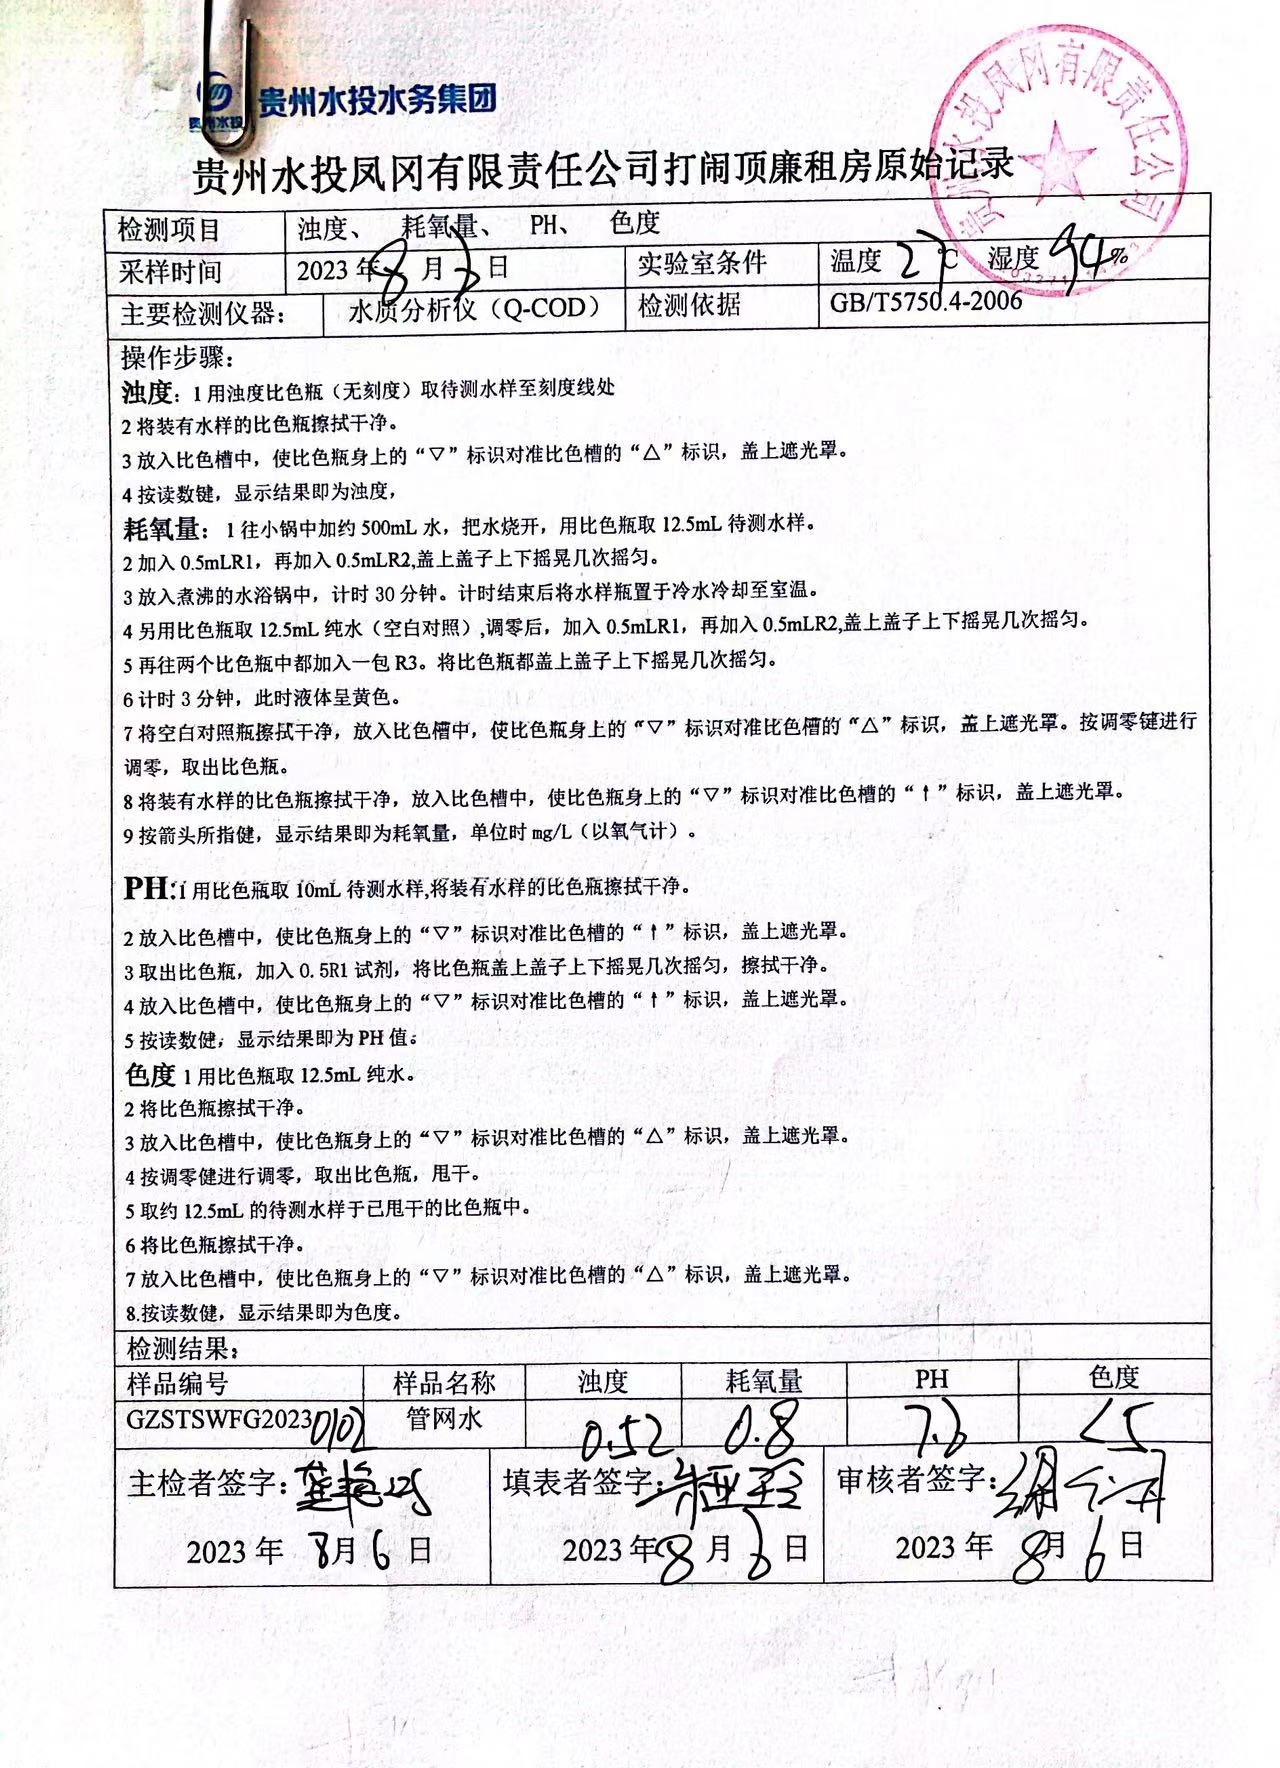 贵州水投
贵州水投水务集团
贵州水投凤冈有限责任公司
贵州水投凤冈有限责任公司打闹顶廉租房原始记录
检测项目 浊度、 耗氧量、 PH、 色度
采样时间 2023年8月6日 实验室条件 温度27℃ 湿度94%
主要检测仪器： 水质分析仪（Q-COD） 检测依据 GB/T5750.4-2006
操作步骤：
浊度：1用浊度比色瓶（无刻度）取待测水样至刻度线处
2将装有水样的比色瓶擦拭干净。
3放入比色槽中，使比色瓶身上的“▽”标识对准比色槽的“△”标识，盖上遮光罩。
4按读数键，显示结果即为浊度，
耗氧量：1往小锅中加约500mL水，把水烧开，用比色瓶取12.5mL待测水样。
2加入0.5mLR1，再加入0.5mLR2,盖上盖子上下摇晃几次摇匀。
3放入煮沸的水浴锅中，计时30分钟。计时结束后将水样瓶置于冷水冷却至室温。
4另用比色瓶取12.5mL纯水（空白对照）,调零后，加入0.5mLR1，再加入0.5mLR2,盖上盖子上下摇晃几次摇匀。
5再往两个比色瓶中都加入一包R3。将比色瓶都盖上盖子上下摇晃几次摇匀。
6计时3分钟，此时液体呈黄色。
7将空白对照瓶擦拭干净，放入比色槽中，使比色瓶身上的“▽”标识对准比色槽的“△”标识，盖上遮光罩。按调零键进行
调零，取出比色瓶。
8将装有水样的比色瓶擦拭干净，放入比色槽中，使比色瓶身上的“▽”标识对准比色槽的“↑”标识，盖上遮光罩。
9按箭头所指健，显示结果即为耗氧量，单位时mg/L（以氧气计）。
PH:1用比色瓶取10mL待测水样,将装有水样的比色瓶擦拭干净。
2放入比色槽中，使比色瓶身上的“▽”标识对准比色槽的“↑”标识，盖上遮光罩。
3取出比色瓶，加入0.5R1试剂，将比色瓶盖上盖子上下摇晃几次摇匀，擦拭干净。
4放入比色槽中，使比色瓶身上的“▽”标识对准比色槽的“↑”标识，盖上遮光罩。
5按读数健；显示结果即为PH值；
色度1用比色瓶取12.5mL纯水。
2将比色瓶擦拭干净。
3放入比色槽中，使比色瓶身上的“▽”标识对准比色槽的“△”标识，盖上遮光罩。
4按调零健进行调零，取出比色瓶，甩干。
5取约12.5mL的待测水样于已甩干的比色瓶中。
6将比色瓶擦拭干净。
7放入比色槽中，使比色瓶身上的“▽”标识对准比色槽的“△”标识，盖上遮光罩。
8.按读数健，显示结果即为色度。
检测结果：
样品编号 样品名称 浊度 耗氧量 PH 色度
GZSTSWFG20230102 管网水 0.52 0.8 7.6 <5
主检者签字： 填表者签字： 审核者签字：
2023年8月6日 2023年8月6日 2023年8月6日